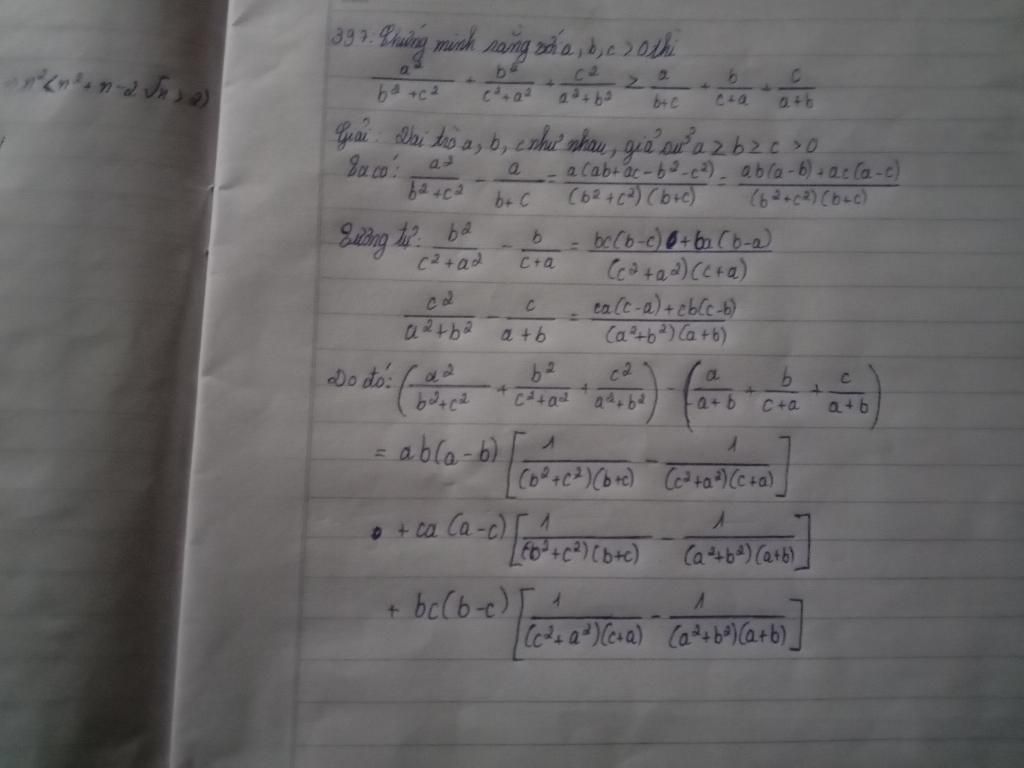 n² < n² + n - 2√n > 2)
397: Chứng minh rằng với a, b, c > 0 thì
a²/(b²+c²) + b²/(c²+a²) + c²/(a²+b²) ≥ a/(b+c) + b/(c+a) + c/(a+b)
Giải: Vai trò a, b, c như nhau, giả sử a ≥ b ≥ c > 0
Ta có: a²/(b²+c²) - a/(b+c) = a(ab+ac-b²-c²)/((b²+c²)(b+c)) = (ab(a-b)+ac(a-c))/((b²+c²)(b+c))
Tương tự: b²/(c²+a²) - b/(c+a) = (bc(b-c)+ba(b-a))/((c²+a²)(c+a))
c²/(a²+b²) - c/(a+b) = (ca(c-a)+cb(c-b))/((a²+b²)(a+b))
Do đó: (a²/(b²+c²) + b²/(c²+a²) + c²/(a²+b²)) - (a/(a+b) + b/(c+a) + c/(a+b))
= ab(a-b) [1/((b²+c²)(b+c)) - 1/((c²+a²)(c+a))]
+ ca(a-c) [1/((b²+c²)(b+c)) - 1/((a²+b²)(a+b))]
+ bc(b-c) [1/((c²+a²)(c+a)) - 1/((a²+b²)(a+b))]